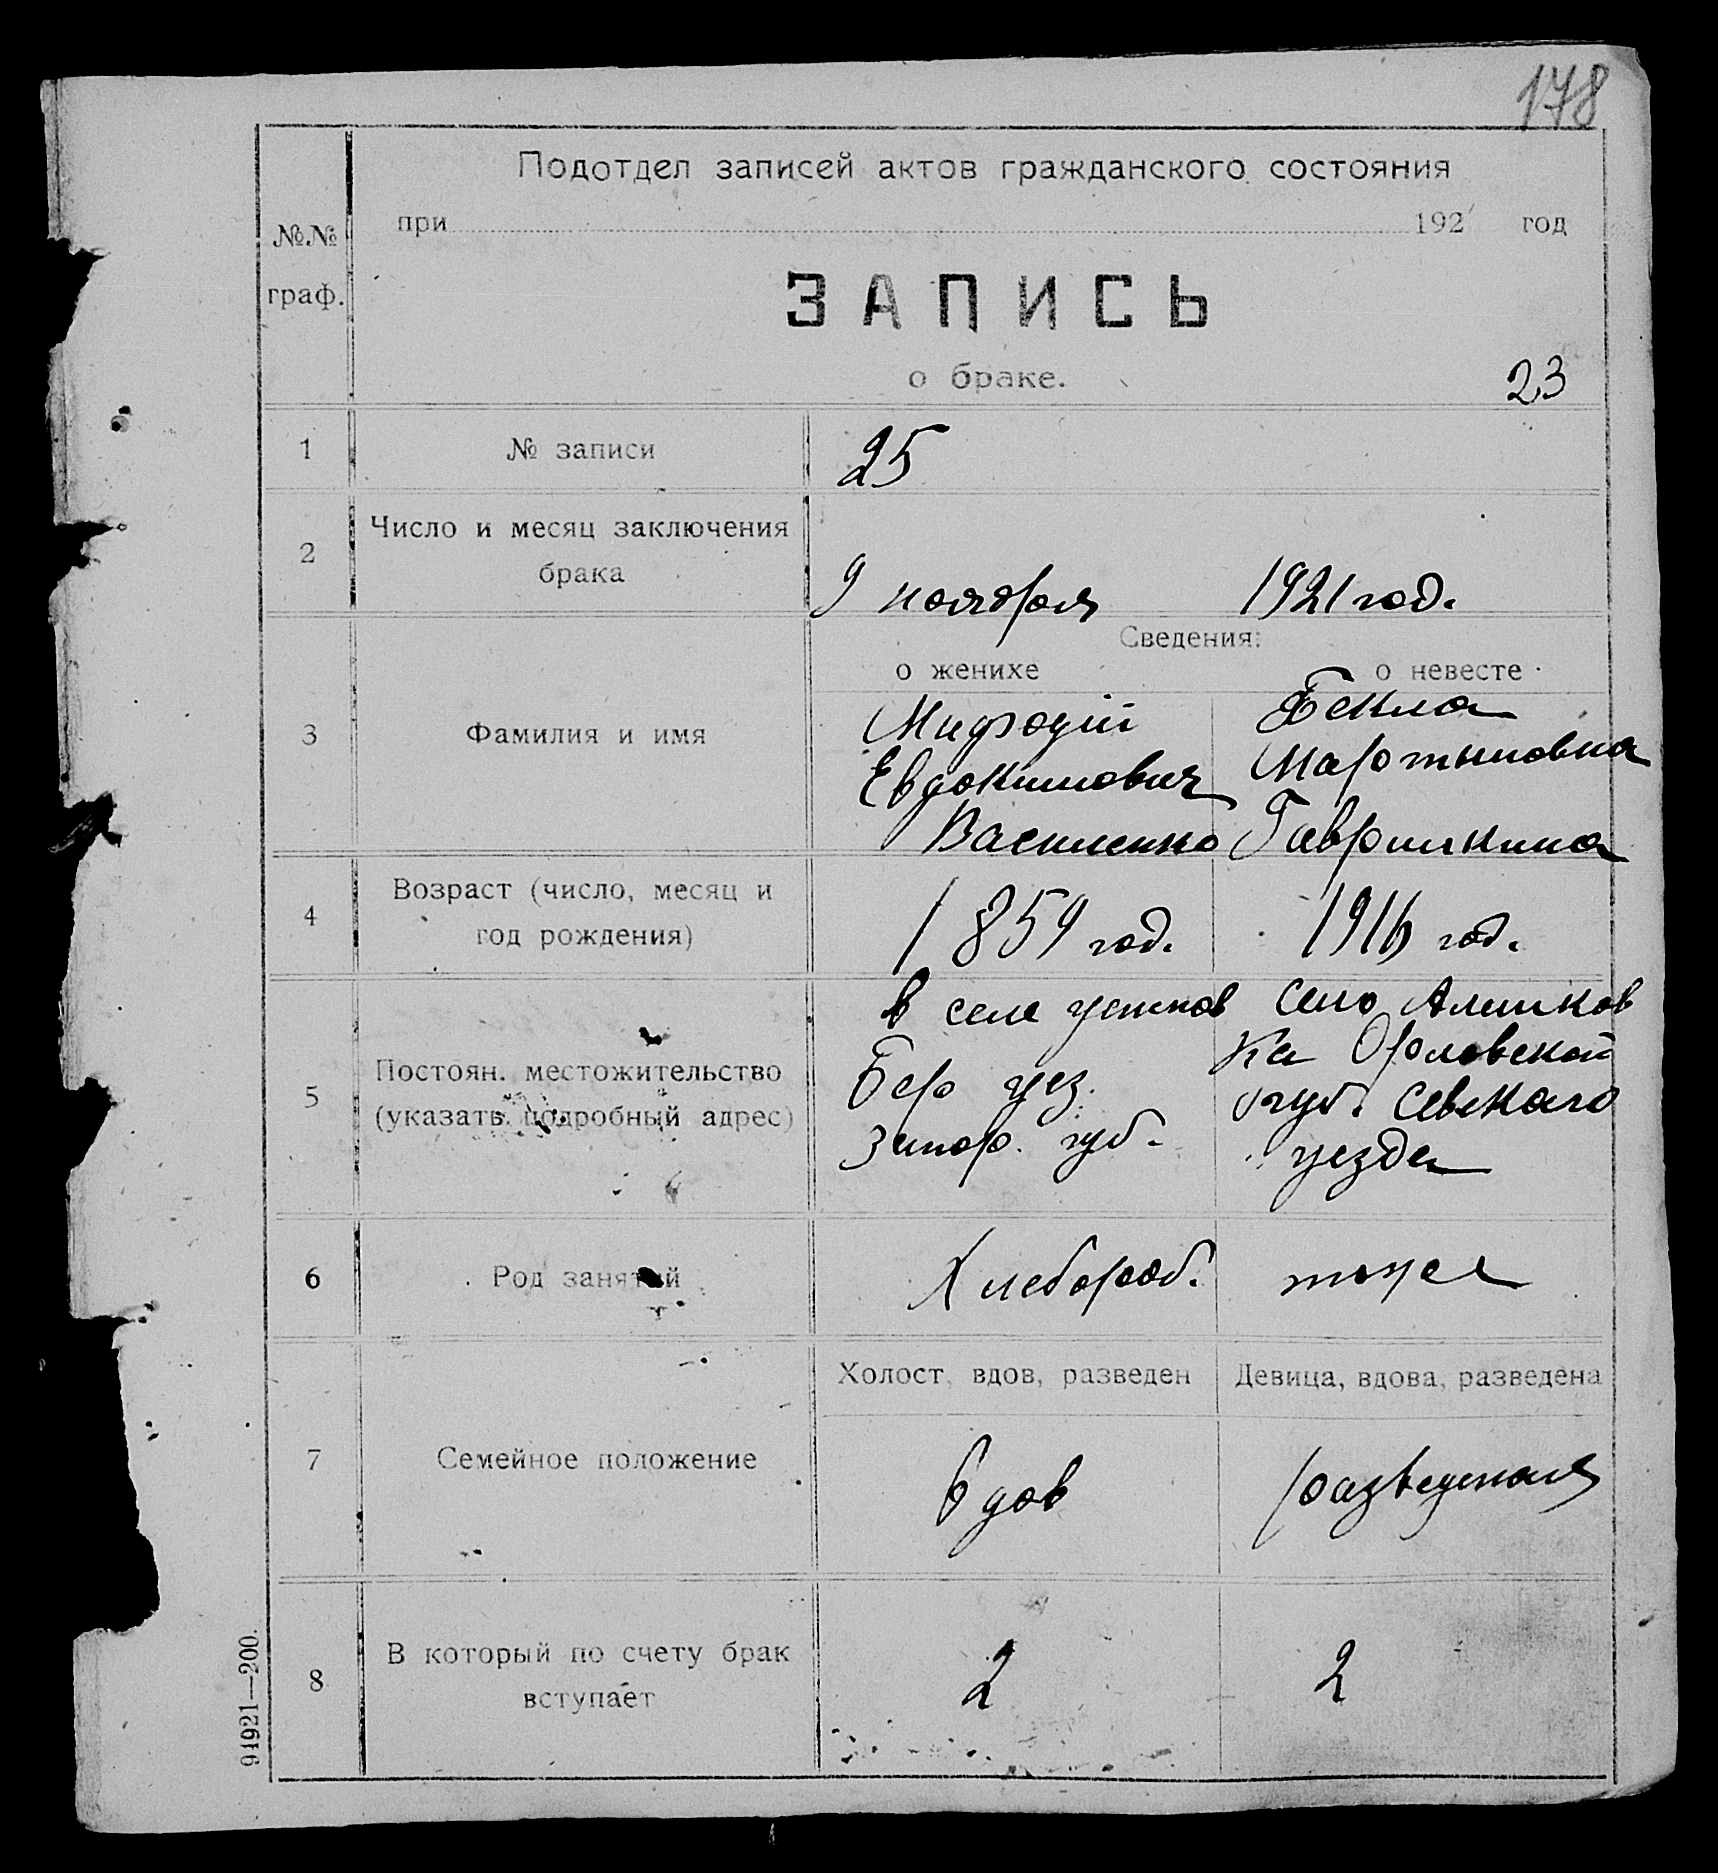 178
Подотдел записей актов гражданского состояния
при 192 год
№№
граф.
ЗАПИСЬ
о браке.
23
1 № записи 25
2 Число и месяц заключения
брака
9 ноября 1921 год.
Сведения:
о женихе о невесте
3 Фамилия и имя
Мифодій Фекла
Евдокимович Мартыновна
Василенко Гаврышкина
4 Возраст (число, месяц и
год рождения)
1859 год. 1916 год.
5 Постоян. местожительство
(указать подробный адрес)
в селе успнов село Алешков
Бер уез. ка Орловской
Запор. губ. губ. Севского
уезда
6 Род занятий Хлебороб. тоже
Холост, вдов, разведен Девица, вдова, разведена
7 Семейное положение вдов разведеная
8 В который по счету брак
вступает
2 2
91921—200.